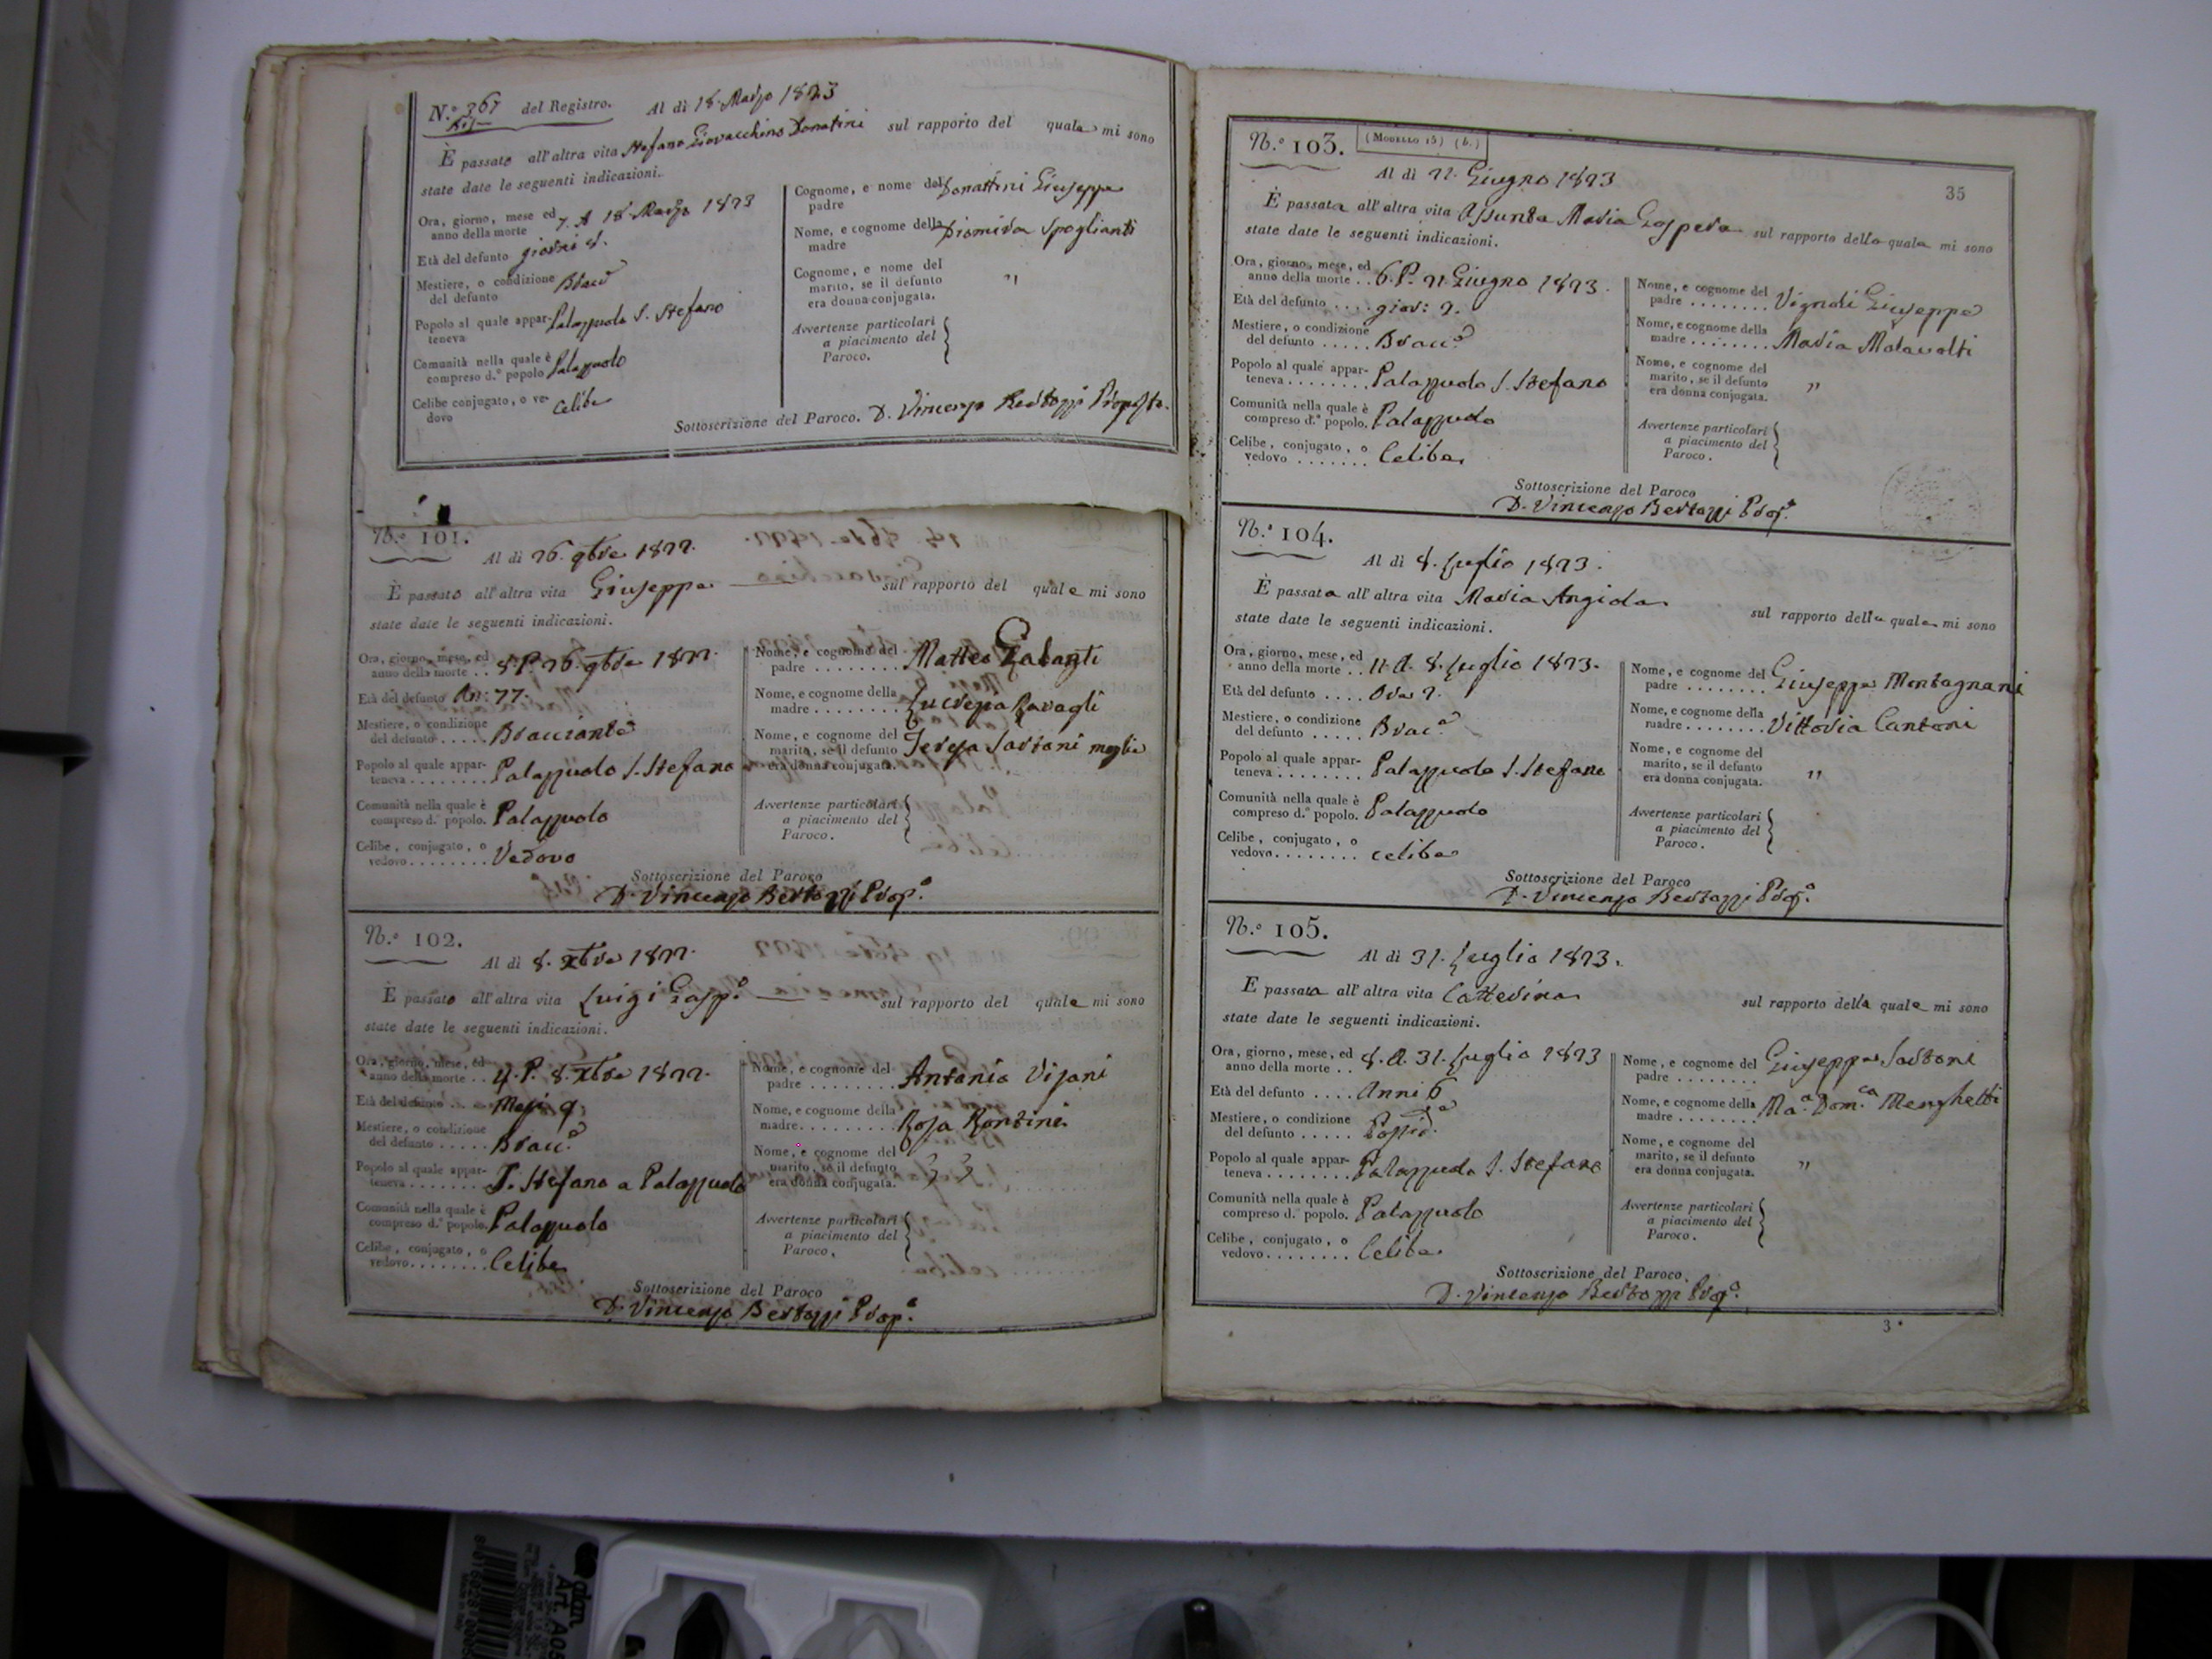 N.° 367 del Registro. Al dì 18. Marzo 1823
È passato all'altra vita Stefano Giovacchino Donatini sul rapporto del quale mi sono
state date le seguenti indicazioni.
Ora, giorno, mese ed 7. A 18 Marzo 1823
anno della morte
Età del defunto giorni 8.
Mestiere, o condizione
del defunto
Popolo al quale appar- Palazzuolo S. Stefano
teneva
Comunità nella quale è Palazzuolo
compreso d.° popolo
Celibe conjugato, o ve- Celibe
dovo
Cognome, e nome del Donattini Giuseppe
padre
Nome, e cognome della Diomira Spoglianti
madre
Cognome, e nome del
marito, se il defunto "
era donna conjugata.
Avvertenze particolari
a piacimento del
Paroco.
Sottoscrizione del Paroco. D. Vincenzo Bertozzi Proposto.
N.° 101.
Al dì 26. 9bre 1822.
È passato all'altra vita Giuseppe sul rapporto del quale mi sono
state date le seguenti indicazioni.
Ora, giorno, mese, ed
anno della morte . . 8. P. 26. 9bre 1822.
Età del defunto An: 77.
Mestiere, o condizione
del defunto ..... Bracciante
Popolo al quale appar-
teneva ........ Palazzuolo S. Stefano
Comunità nella quale è
compreso d.° popolo. Palazzuolo
Celibe, conjugato, o
vedovo........ Vedovo
Nome, e cognome del
padre ........ Matteo Galanti
Nome, e cognome della
madre ........ Lucrezia Ravagli
Nome, e cognome del
marito, se il defunto Teresa Sartoni moglie
era donna conjugata.
Avvertenze particolari
a piacimento del
Paroco.
Sottoscrizione del Paroco
D. Vincenzo Bertozzi Prop.°
N.° 102.
Al dì 8. Xbre 1822.
È passato all'altra vita Luigi Gasp.° sul rapporto del quale mi sono
state date le seguenti indicazioni.
Ora, giorno, mese, ed
anno della morte . . 4. P. 8. Xbre 1822.
Età del defunto . . . Mesi 9.
Mestiere, o condizione
del defunto ..... Bracc.e
Popolo al quale appar-
teneva ........ S. Stefano a Palazzuolo
Comunità nella quale è
compreso d.° popolo. Palazzuolo
Celibe, conjugato, o
vedovo........ Celibe
Nome, e cognome del
padre ........ Antonio Visani
Nome, e cognome della
madre........ Rosa Rontini
Nome, e cognome del
marito, se il defunto
era donna conjugata.
Avvertenze particolari
a piacimento del
Paroco.
Sottoscrizione del Paroco
D. Vincenzo Bertozzi Prop.°
N.° 103. (Modello 15) (b.)
35
Al dì 22. Giugno 1823
È passata all'altra vita Assunta Maria Gaspera sul rapporto della quale mi sono
state date le seguenti indicazioni.
Ora, giorno, mese, ed
anno della morte . . 6. P. 21. Giugno 1823.
Età del defunto .... gior: 2.
Mestiere, o condizione
del defunto ..... Bracc.e
Popolo al quale appar-
teneva ........ Palazzuolo S. Stefano
Comunità nella quale è
compreso d.° popolo. Palazzuolo
Celibe, conjugato, o
vedovo ....... Celibe
Nome, e cognome del
padre ........ Vignoli Giuseppe
Nome, e cognome della
madre ........ Maria Malavolti
Nome, e cognome del
marito, se il defunto "
era donna conjugata.
Avvertenze particolari
a piacimento del
Paroco.
Sottoscrizione del Paroco
D. Vincenzo Bertozzi Prop.°
N.° 104.
Al dì 8. Luglio 1823.
È passata all'altra vita Maria Angiola sul rapporto della quale mi sono
state date le seguenti indicazioni.
Ora, giorno, mese, ed
anno della morte . . 11. A. 8. Luglio 1823.
Età del defunto .... Ore 2.
Mestiere, o condizione
del defunto ..... Brac.e
Popolo al quale appar-
teneva ........ Palazzuolo S. Stefano
Comunità nella quale è
compreso d.° popolo. Palazzuolo
Celibe, conjugato, o
vedovo........ celibe
Nome, e cognome del
padre ........ Giuseppe Montagnani
Nome, e cognome della
madre........ Vittoria Cantoni
Nome, e cognome del
marito, se il defunto
era donna conjugata. "
Avvertenze particolari
a piacimento del
Paroco.
Sottoscrizione del Paroco
D. Vincenzo Bertozzi Prop.°
N.° 105.
Al dì 31. Luglio 1823.
È passata all'altra vita Catterina sul rapporto della quale mi sono
state date le seguenti indicazioni.
Ora, giorno, mese, ed
anno della morte . . 8. A. 31. Luglio 1823
Età del defunto .... Anni 6
Mestiere, o condizione
del defunto ..... Possid.e
Popolo al quale appar-
teneva ........ Palazzuolo S. Stefano
Comunità nella quale è
compreso d.° popolo. Palazzuolo
Celibe, conjugato, o
vedovo........ Celibe.
Nome, e cognome del
padre ........ Giuseppe Sartoni
Nome, e cognome della
madre ........ Ma.a Dom.ca Menghetti
Nome, e cognome del
marito, se il defunto
era donna conjugata. "
Avvertenze particolari
a piacimento del
Paroco.
Sottoscrizione del Paroco.
D. Vincenzo Bertozzi Prop.°
3 *